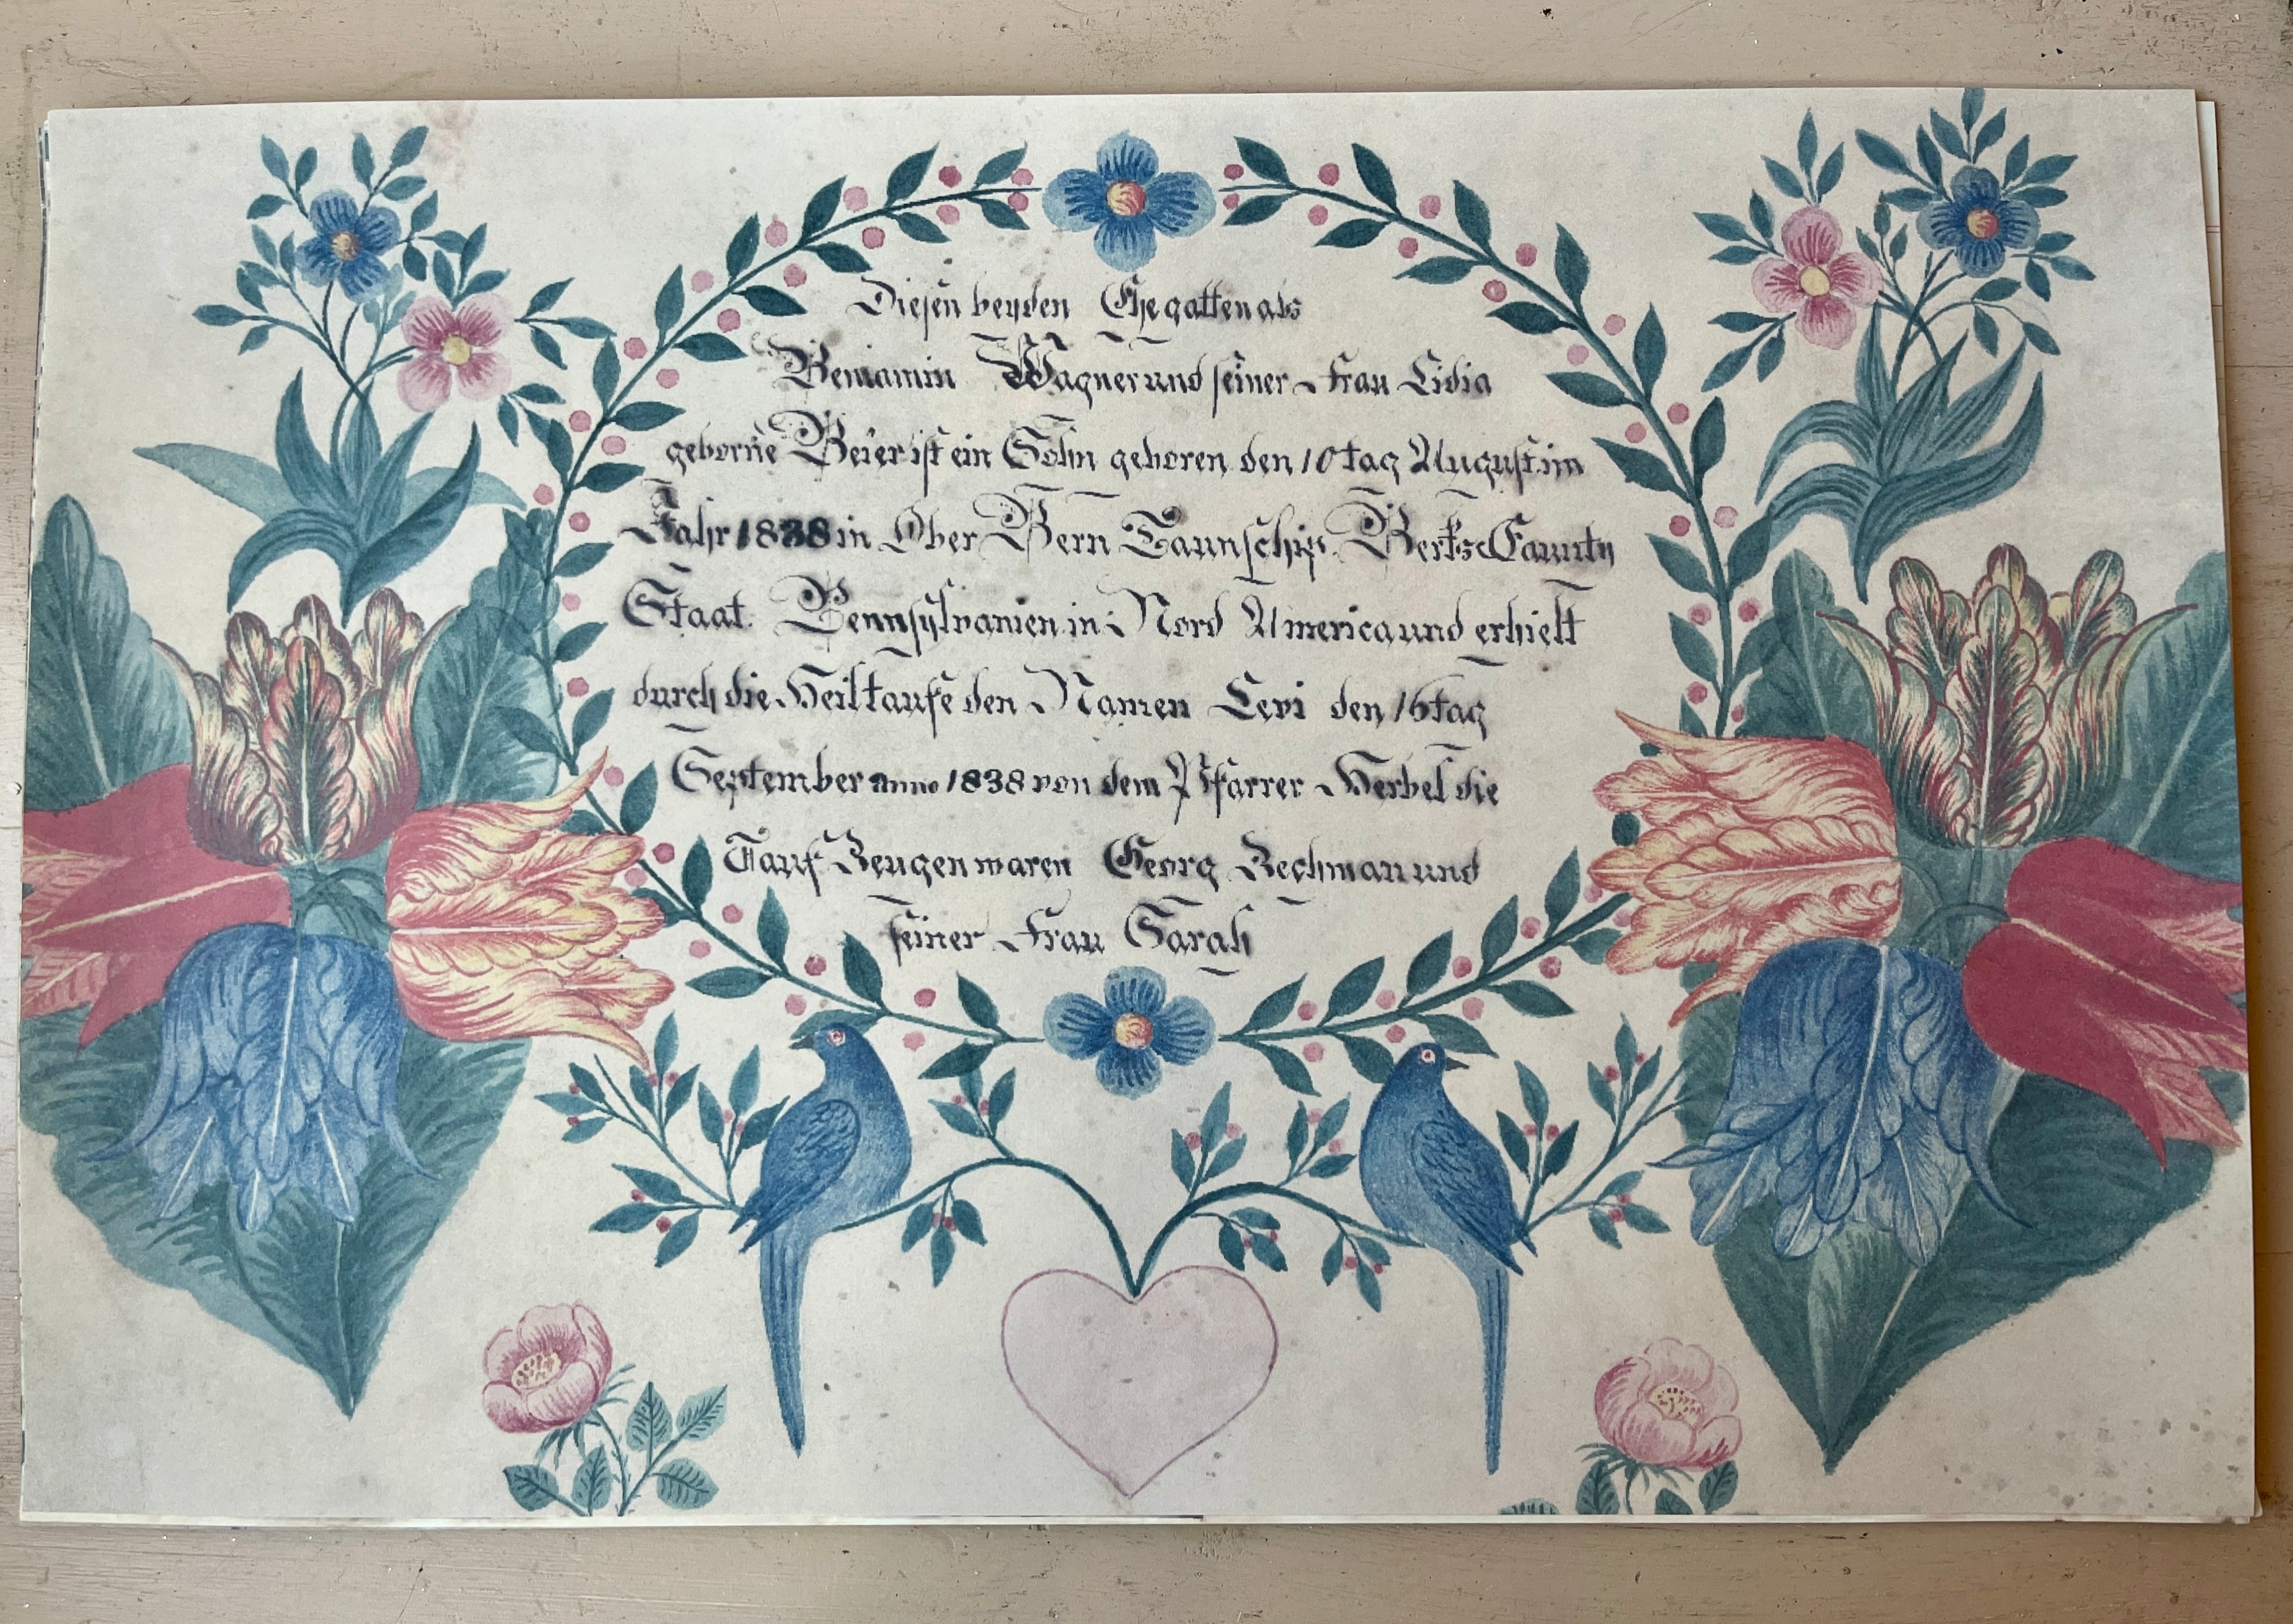 Diesen beyden Ehegatten als
Beniamin Wagner und seiner Frau Lidia
geborne Beier ist ein Sohn geboren den 10 tag August im
Jahr 1838 in Ober Bern Taunschip Berks Caunty
Staat Pennsylvanien in Nord America und erhielt
durch die Heil taufe den Namen Levi den 16 tag
September anno 1838 von dem Pfarrer Herbel die
Tauf Zeugen waren Georg Zechman und
seiner Frau Sarah